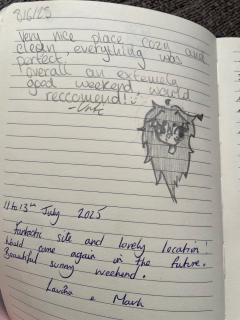 8/6/25
Very nice place, cozy and
clean, everything was
perfect.
overall an extremely
good weekend, would
reccomend! :)
11 to 13th July 2025
Fantastic site and lovely location!
Would come again in the future.
Beautiful sunny weekend.
& Mark